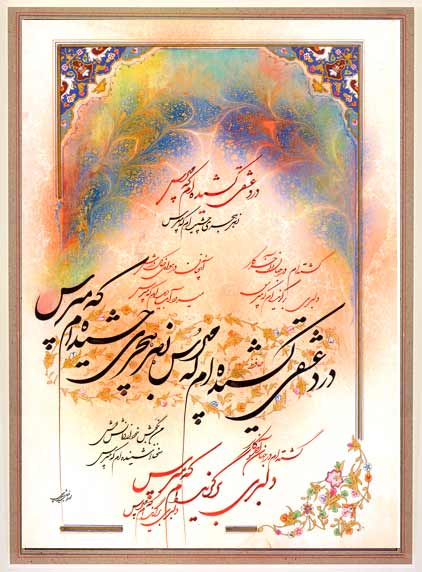 درد عشقی کشیده ام که مپرس
زهر هجری چشیده ام که مپرس
گشته ام در جهان و آخر کار
دلبری برگزیده ام که مپرس
آنچنان در هوای خاک درش
میرود آب دیده ام که مپرس
درد عشقی کشیده ام که مپرس زهر هجری چشیده ام که مپرس
حافظ
گشته ام در جهان و آخر کار
دلبری برگزیده ام که مپرس
من بگوش خود از دهانش دوش
سخنانی شنیده ام که مپرس
دلبری برگزیده ام که مپرس